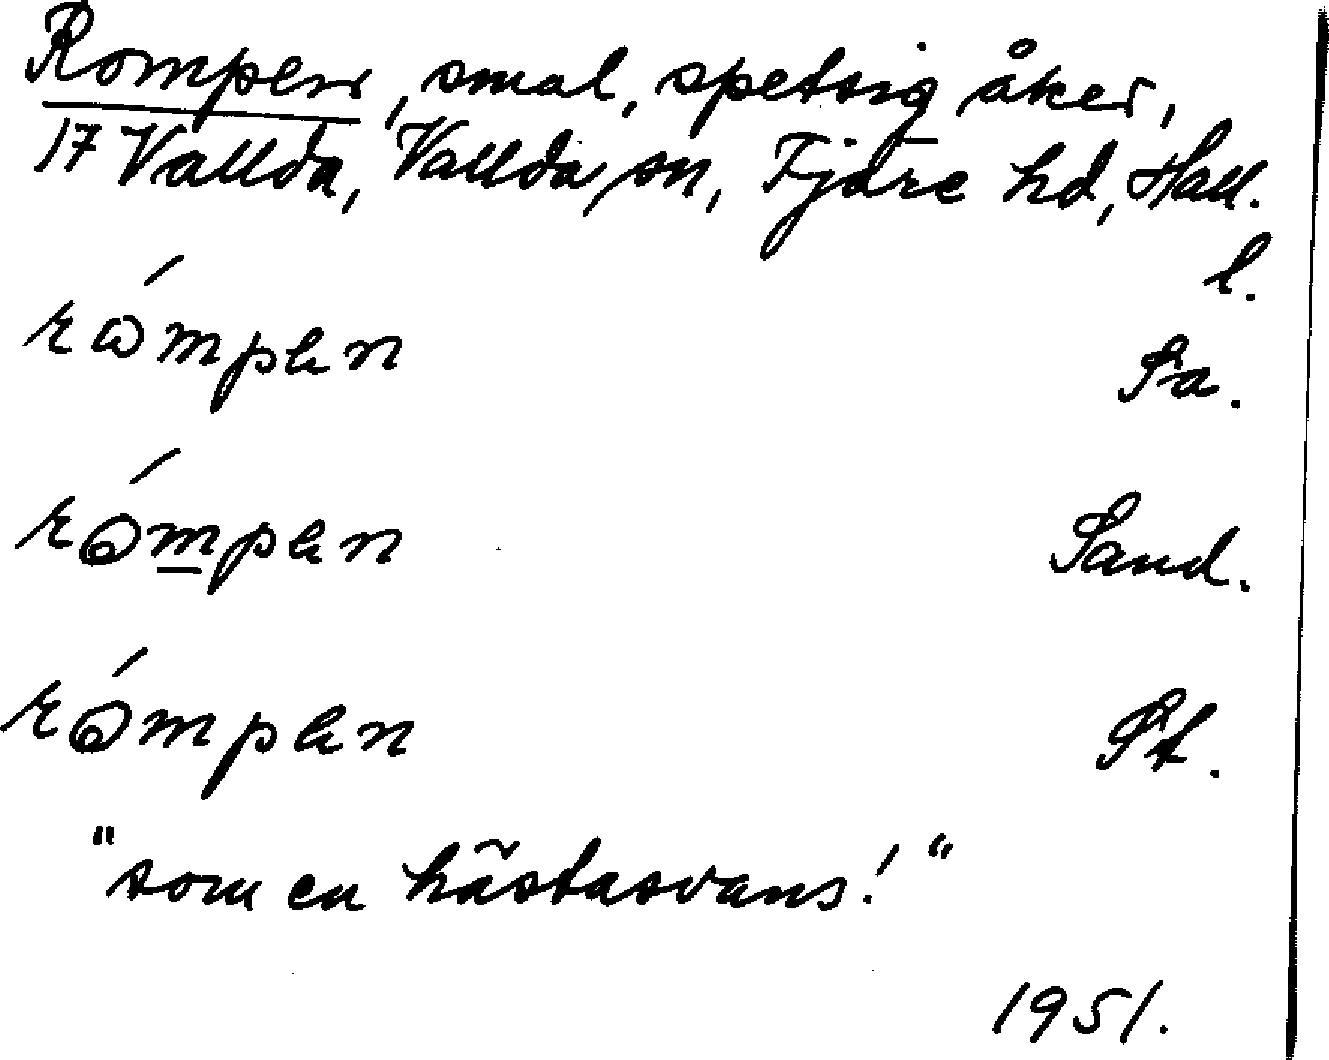 Rompen, smal, spetsig åker,
17 Vallda, Vallda sn, Fjäre hd, Hall.
l.
rómpen Sa.
rómpen Sand.
rómpen St.
"som en hästasvans!"
1951.